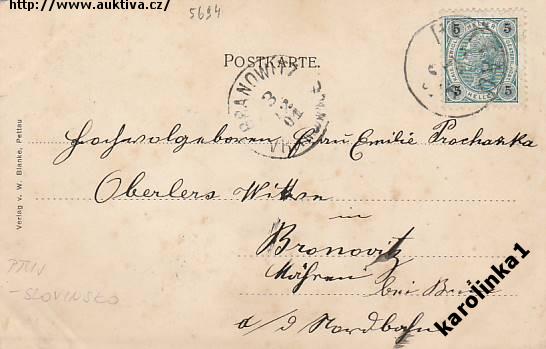 http://www.auktiva.cz/
5694
POSTKARTE.
5 5
HELLER
5 5
BRANOWITZ
3
VRA
Hochwolgeboren Frau Emilie Prochaska
Oberlers Witwe
in
Bronovitz
Mähren bei Brünn
a/d Nordbahn
Verlag v. W. Blanke, Pettau
PTUJ
- SLOVINSKO
karolinka1